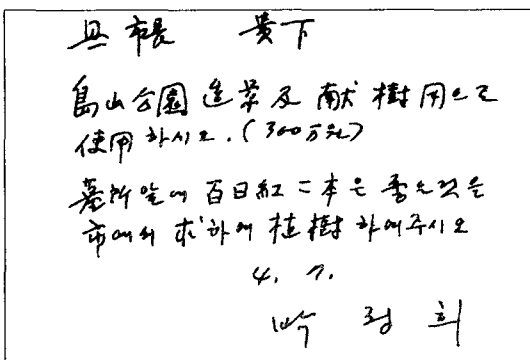 具 市長 貴下
島山公園 造景 及 献樹用으로
使用 하시오. (300万원)
墓所앞에 百日紅 二本은 좋은것을
市에서 求하여 植樹 하여주시오
4. 7.
박 정 희